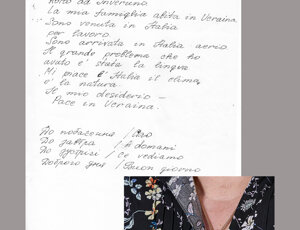 Vivo ad Inveruno.
La mia famiglia abita in Ucraina.
Sono venuta in Italia
per lavoro.
Sono arrivata in Italia aerio.
Il grande problema che ho
avuto e' stata la lingua.
Mi piace l'Italia il clima,
e' la natura.
Il mio desiderio -
Pace in Ucraina.
До побачення /
До завтра / A domani
До зустрічі / Ce vediamo
Доброго дня / Buon giorno